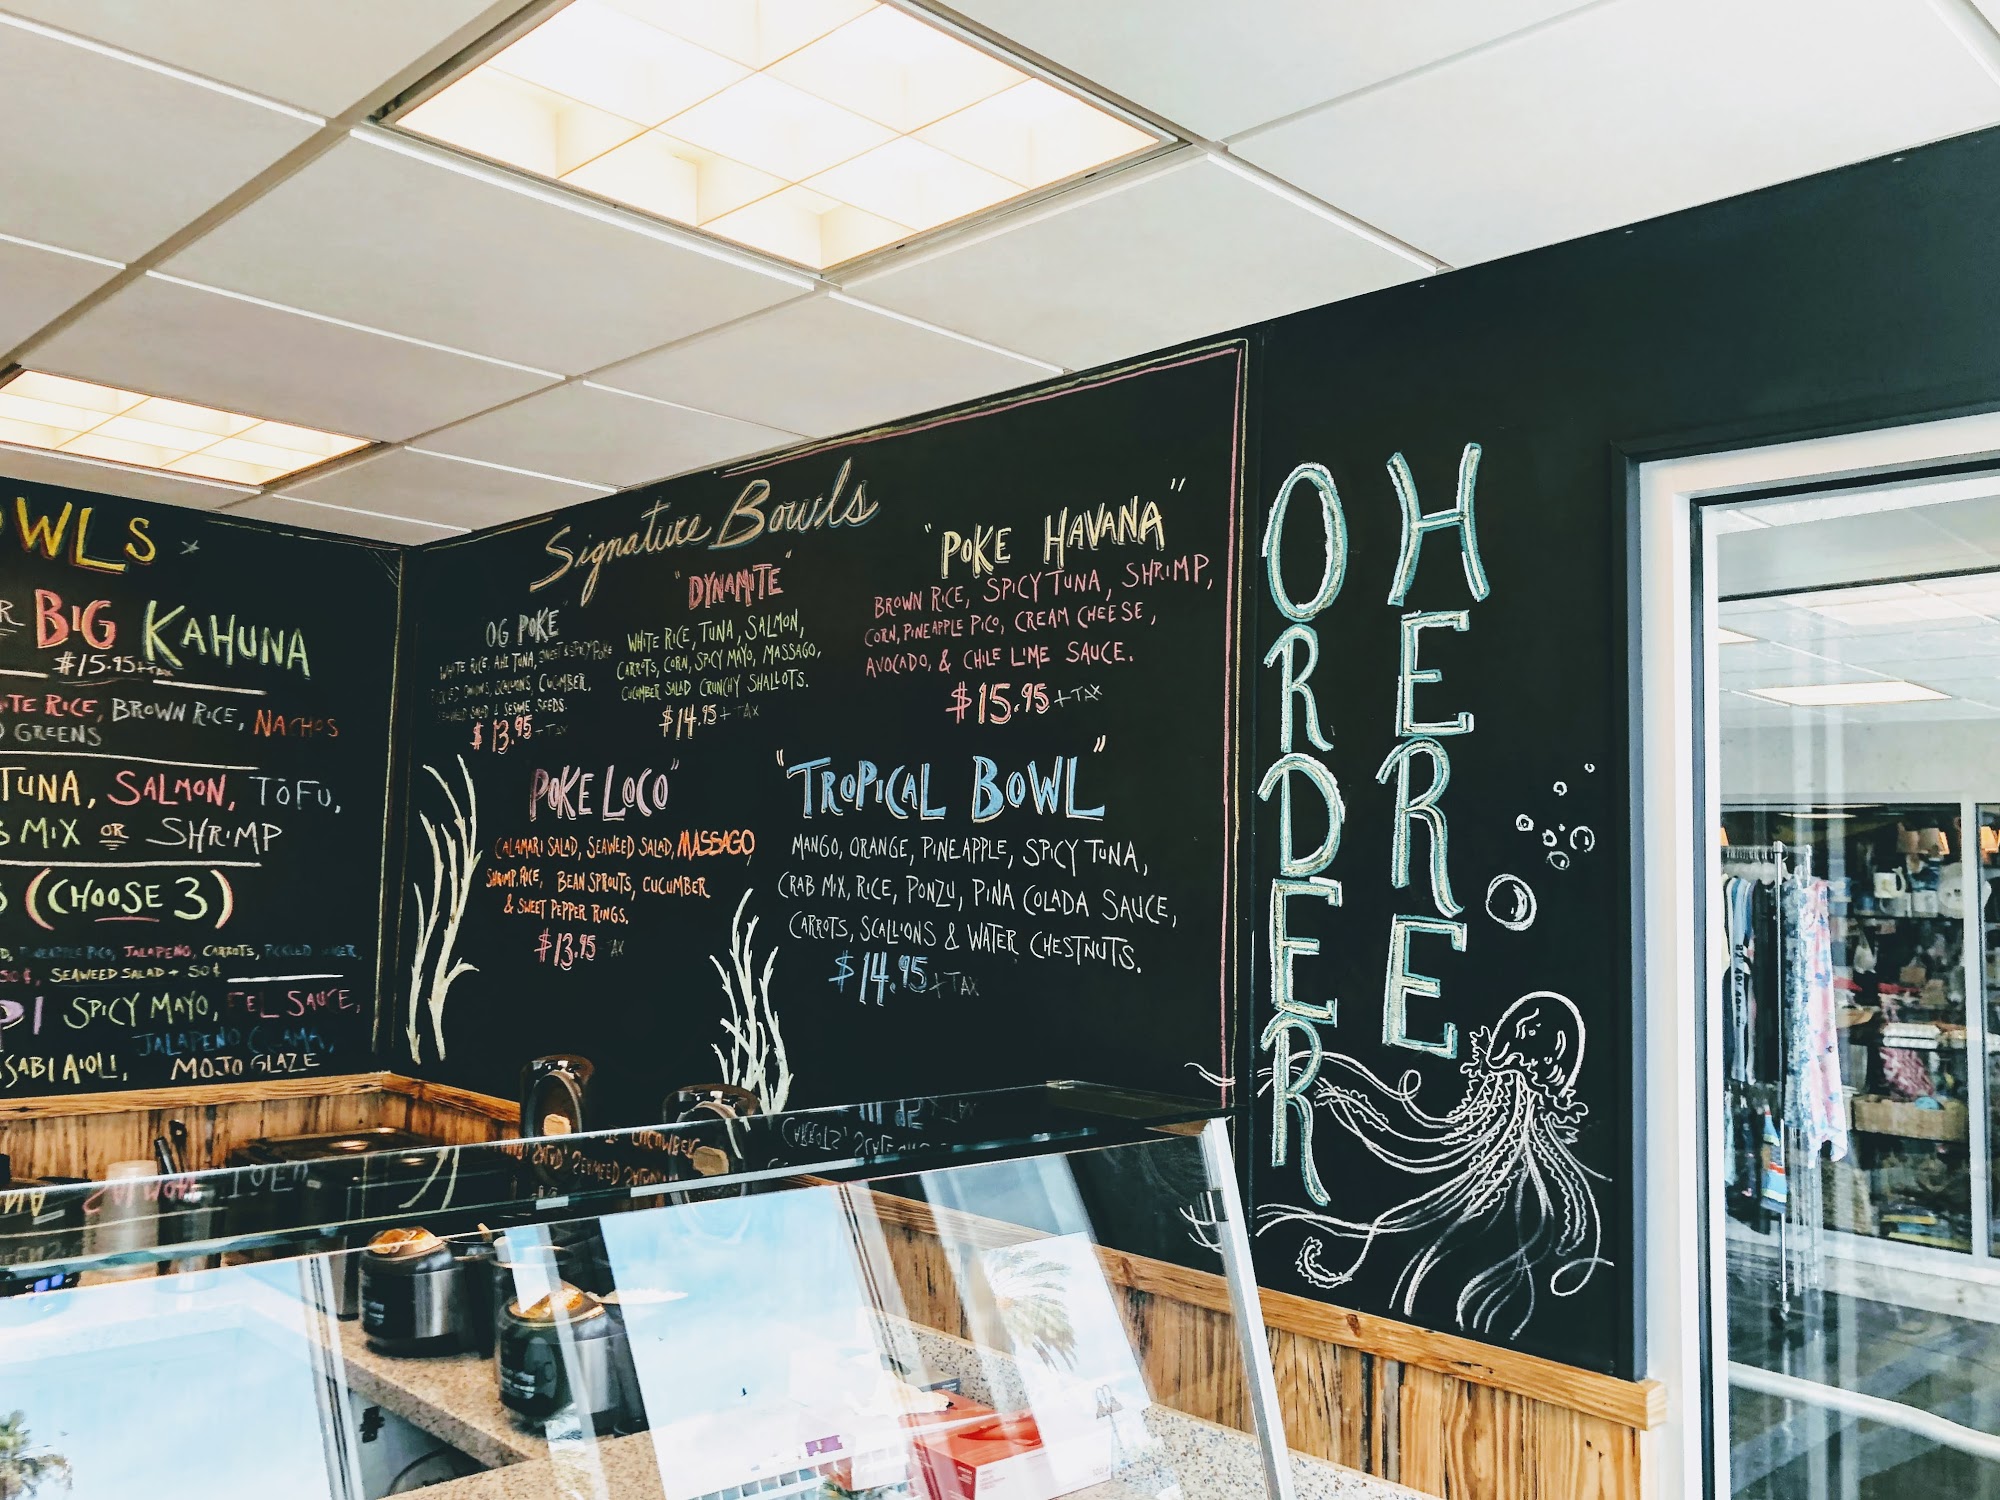 BIG KAHUNA
$15.95 + TAX
RICE, BROWN RICE, NACHOS
GREENS
TUNA, SALMON, TOFU,
MIX OR SHRIMP
(CHOOSE 3)
PINEAPPLE PICO, JALAPENO, CARROTS, PICKLED GINGER,
50¢, SEAWEED SALAD + 50¢
SPICY MAYO, EEL SAUCE,
JALAPENO CREMA,
AIOLI, MOJO GLAZE
Signature Bowls
OG POKE"
WHITE RICE, AHI TUNA, SWEET & SPICY POKE
PICKLED ONIONS, SCALLIONS, CUCUMBER,
SEAWEED SALAD & SESAME SEEDS.
$13.95 + TAX
"DYNAMITE"
WHITE RICE, TUNA, SALMON,
CARROTS, CORN, SPICY MAYO, MASSAGO,
CUCUMBER SALAD CRUNCHY SHALLOTS.
$14.95 + TAX
"POKE HAVANA"
BROWN RICE, SPICY TUNA, SHRIMP,
CORN, PINEAPPLE PICO, CREAM CHEESE,
AVOCADO, & CHILE LIME SAUCE.
$15.95 + TAX
POKE LOCO"
CALAMARI SALAD, SEAWEED SALAD, MASSAGO,
SHRIMP, RICE, BEAN SPROUTS, CUCUMBER
& SWEET PEPPER RINGS.
$13.95 TAX
"TROPICAL BOWL"
MANGO, ORANGE, PINEAPPLE, SPICY TUNA,
CRAB MIX, RICE, PONZU, PINA COLADA SAUCE,
CARROTS, SCALLIONS & WATER CHESTNUTS.
$14.95 + TAX
ORDER
HERE